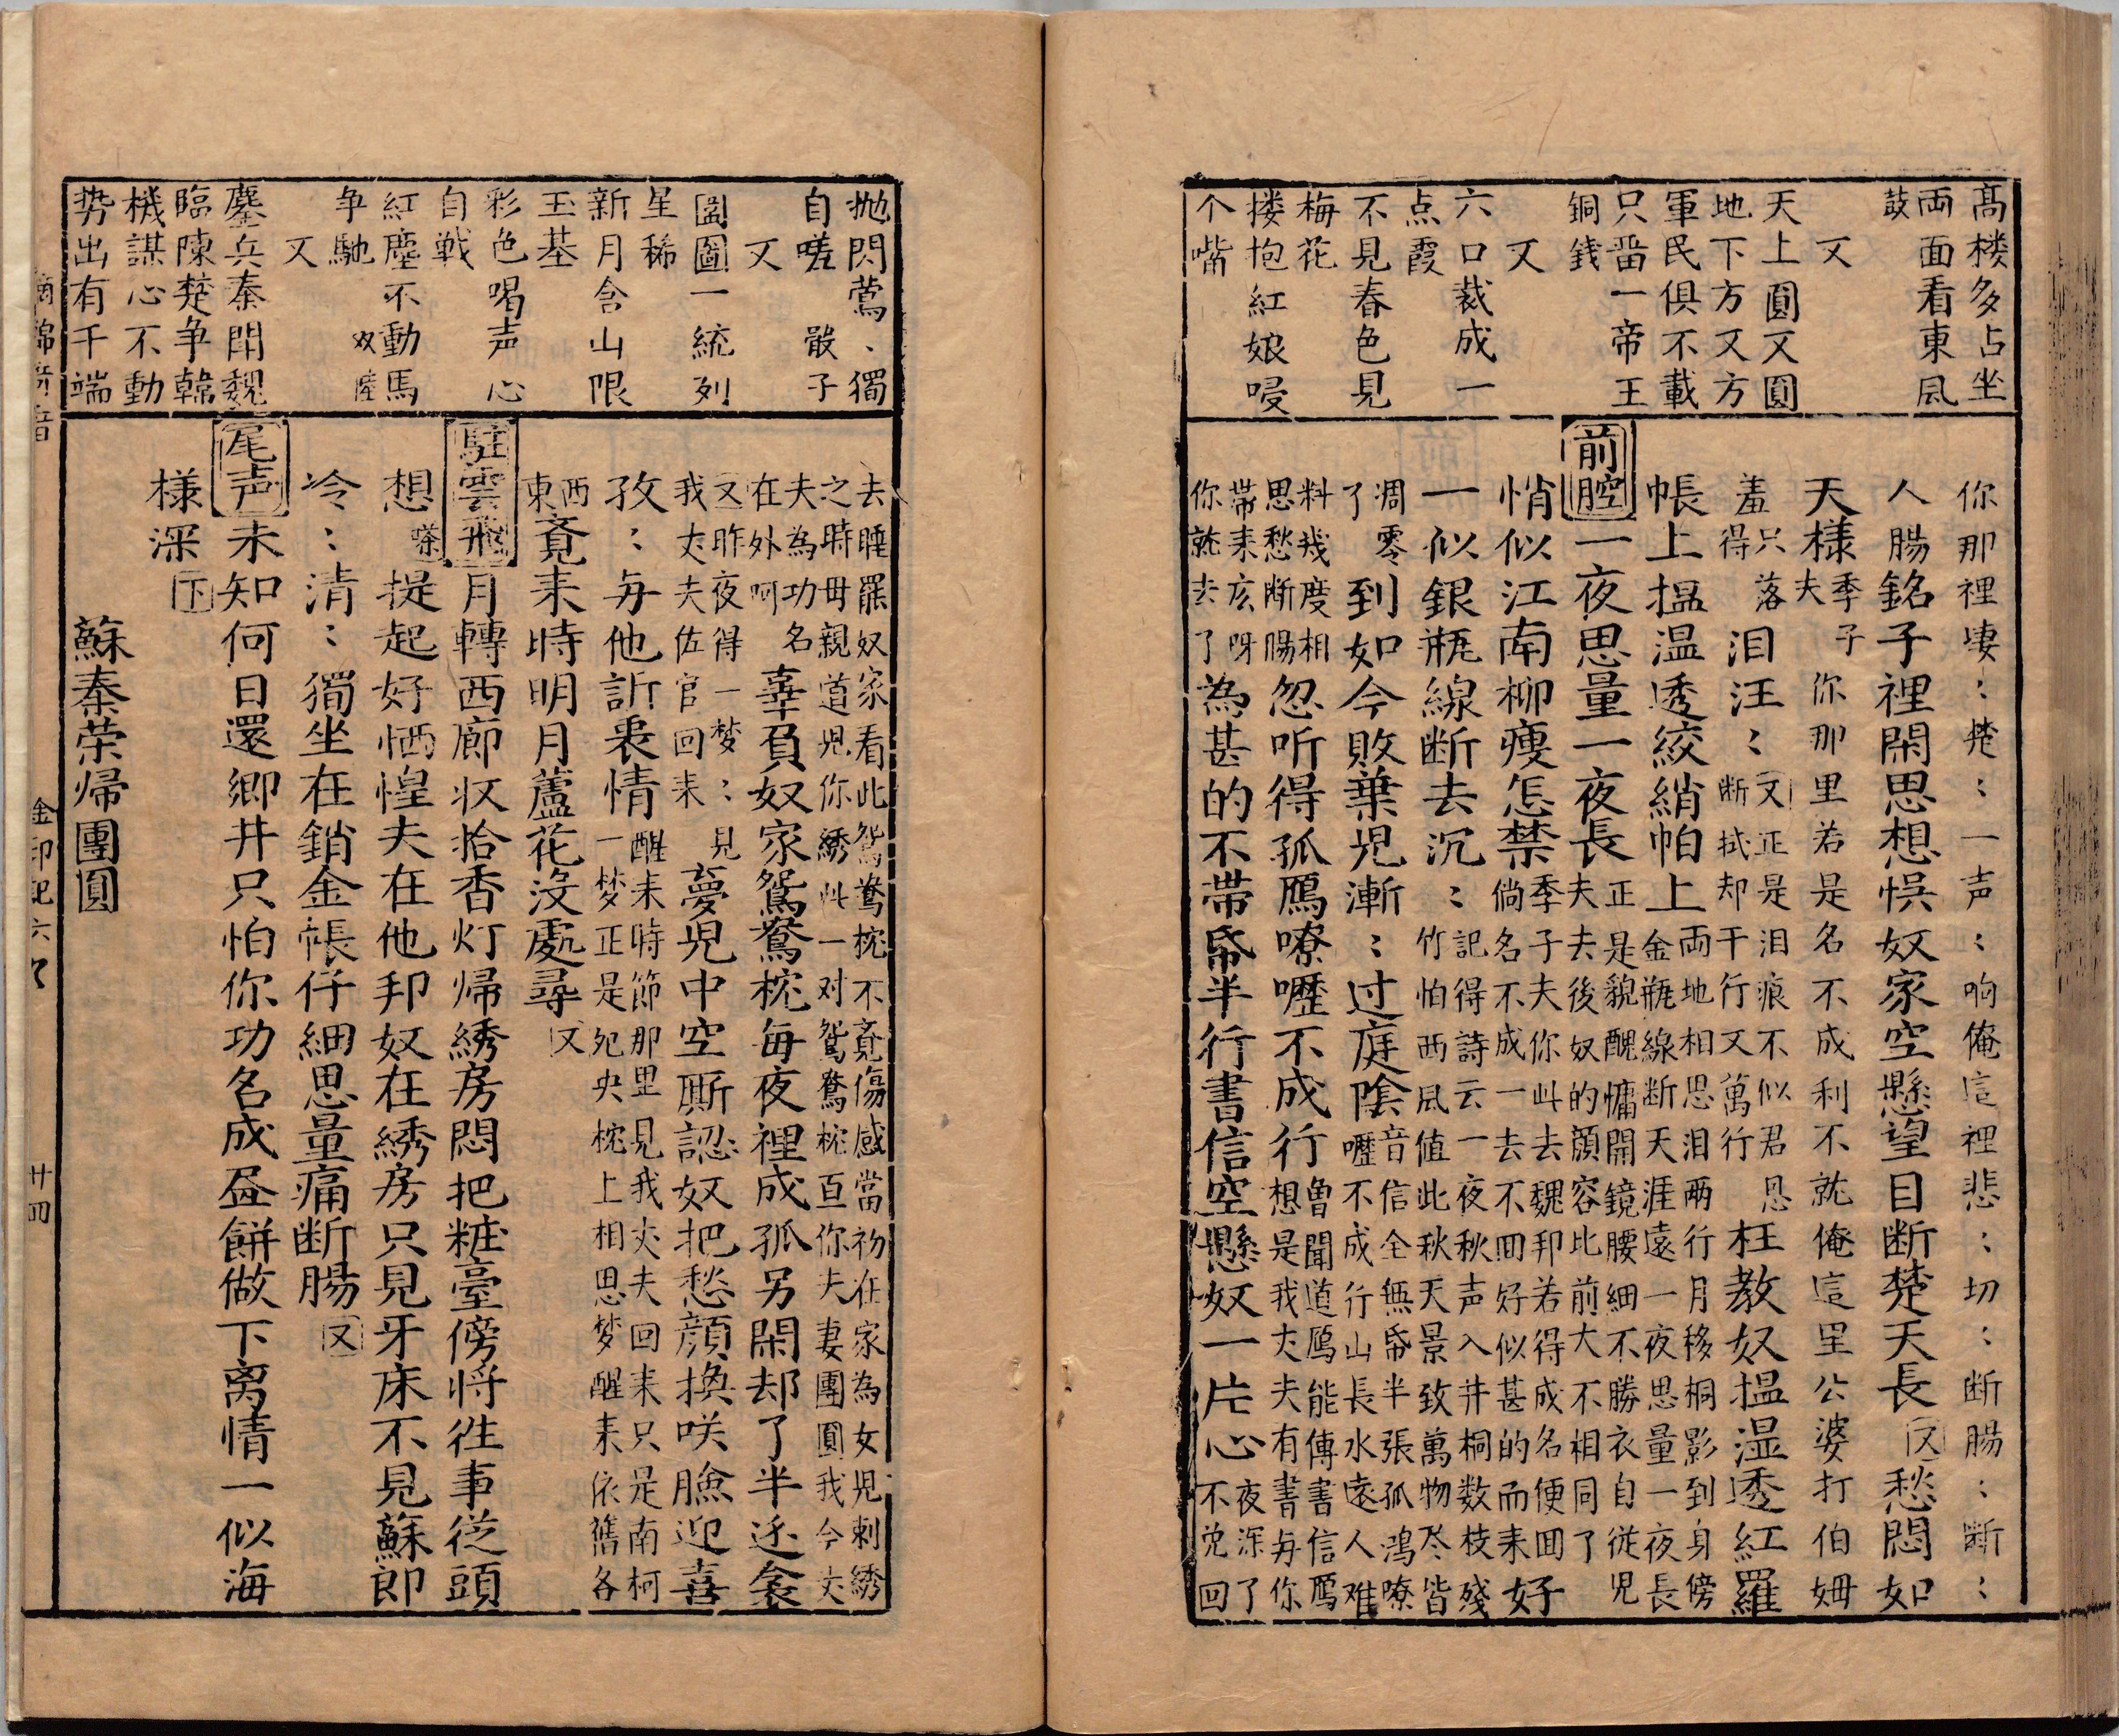 高楼多占坐
両面看東風
鼓
又
天上圓又圓
地下方又方
軍民俱不載
只畨一帝王
銅錢
又
六口裁成一
点霞
不見春色見
梅花
搂抱紅娘唚
个嘴
你那裡凄〻楚〻一声〻响俺這裡悲〻切〻断腸〻断〻
人腸銘子裡閑思想悮奴家空懸望目断楚天長又愁悶如
天様季子夫你那里若是名不成利不就俺這里公婆打伯姆
羞只落得泪汪〻又正是泪痕不似君恩断拭却千行又萬行枉教奴揾湿透紅羅
帳上揾温透絞綃帕上両地相思泪兩行月移桐影到身傍金瓶線断天涯遠一夜思量一夜長
前腔一夜思量一夜長正是貌醜慵開鏡腰細不勝衣自從児夫去後奴的顔容比前大不相同了
悄似江南柳瘦怎禁季子夫你此去魏邦若得成名便回倘名不成一去不回好似甚的而来好
一似銀瓶線断去沉〻記得詩云一夜秋声入井桐数枝殘竹怕西風値此秋天景致萬物尽皆
凋零了到如今敗葉児漸〻过庭陰音信全無帋半張孤鴻嘹嚦不成行山長水遠人难
料幾度相思愁断腸忽听得孤鴈嘹嚦不成行魯聞道鴈能傳書信鴈想是我丈夫有書与你
帯来玄呀你就去了為甚的不帯帋半行書信空懸奴一片心夜深了不免回
抛閃鶯、獨
自嗟 骰子
又
圖圖一統列
星稀
新月含山限
玉基
彩色喝声心
自戦
紅塵不動馬
争馳 双陸
又
鏖兵秦閗魏
臨陳楚争韓
機謀心不動
势出有千端
去睡罷奴家看此鴛鴦枕不竟傷感當初在家為女児刺綉
之時毋親道児你綉此一对鴛鴦枕亘你夫妻團圓我今丈
夫為功名在外呵辜負奴家鴛鴦枕每夜裡成孤另閑却了半边衾
又昨夜得一梦〻見我丈夫佐官回来夢児中空厮認奴把愁顔換咲臉迎喜
孜〻与他訴衷情醒来時節那里見我丈夫回来只是南柯一梦正是夗央枕上相思梦醒来依舊各
西東竟来時明月蘆花没處尋又
駐雲飛月轉西廊収拾香灯帰綉房悶把粧臺傍将徃事従頭
想嗏提起好恓惶夫在他邦奴在綉房只見牙床不見蘇郎
冷〻清〻獨坐在銷金帳仔細思量痛断腸又
尾声未知何日還鄉井只怕你功名成畫餅做下离情一似海
様深下
蘇秦荣帰團圓
金印記六
廿四